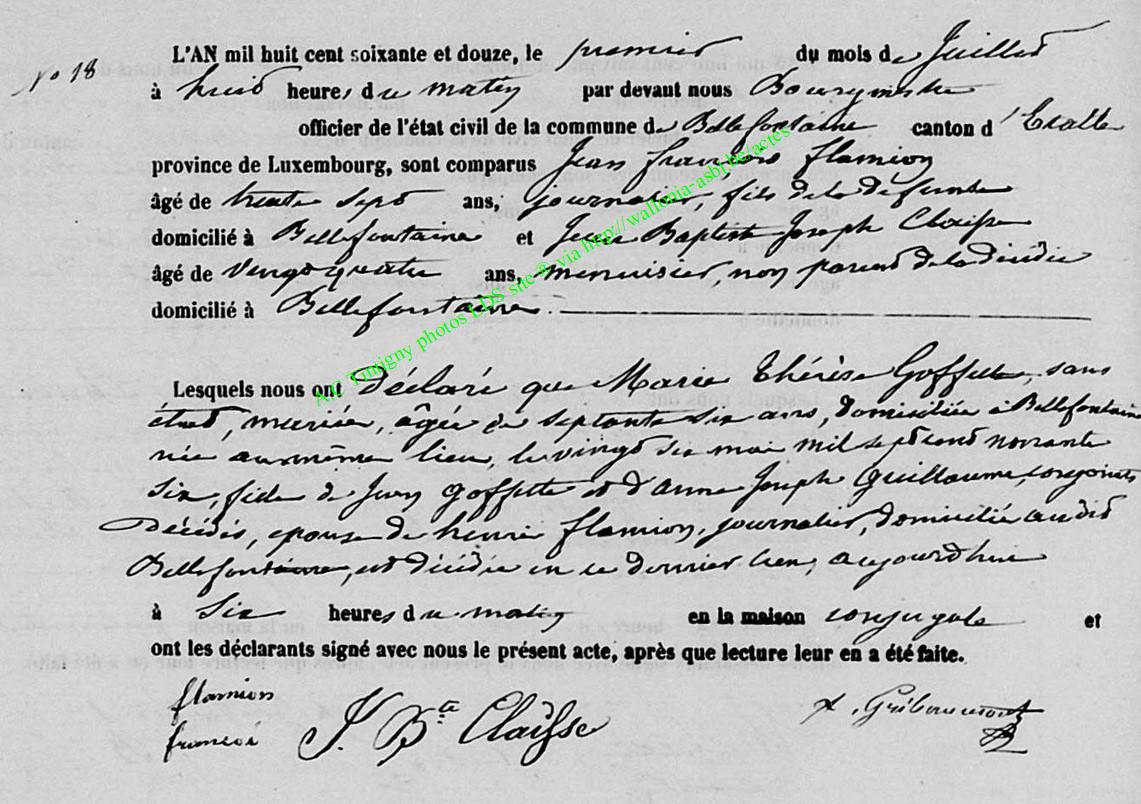 No 18
L'AN mil huit cent soixante et douze, le premier du mois de Juillet
à huit heures du matin par devant nous Bourgmestre
officier de l'état civil de la commune de Bellefontaine canton d'Etalle
province de Luxembourg, sont comparus Jean françois flamion
âgé de trente sept ans, journalier, fils de la défunte
domicilié à Bellefontaine et Jean Baptiste Joseph Claisse
âgé de vingt quatre ans, menuisier, non parent de la décédée
domicilié à Bellefontaine.
Lesquels nous ont Déclaré que Marie Thérèse Goffette, sans
état, mariée, âgée de septante six ans, domiciliée à Bellefontaine
née au même lieu, le vingt six mai mil sept cent nonante
six, fille de Jean Goffette et d'anne Joseph Guillaume, conjoints
Décédés, épouse de henri flamion, journalier, domicilié audit
Bellefontaine, est décédée en ce dernier lieu, aujourd'hui
à Six heures du matin en la maison conjugale et
ont les déclarants signé avec nous le présent acte, après que lecture leur en a été faite.
flamion
francoi
J. Bte Claisse
Gribaumont
A.C Tintigny photos LDS site © via http://wallonia-asbl.be/actes